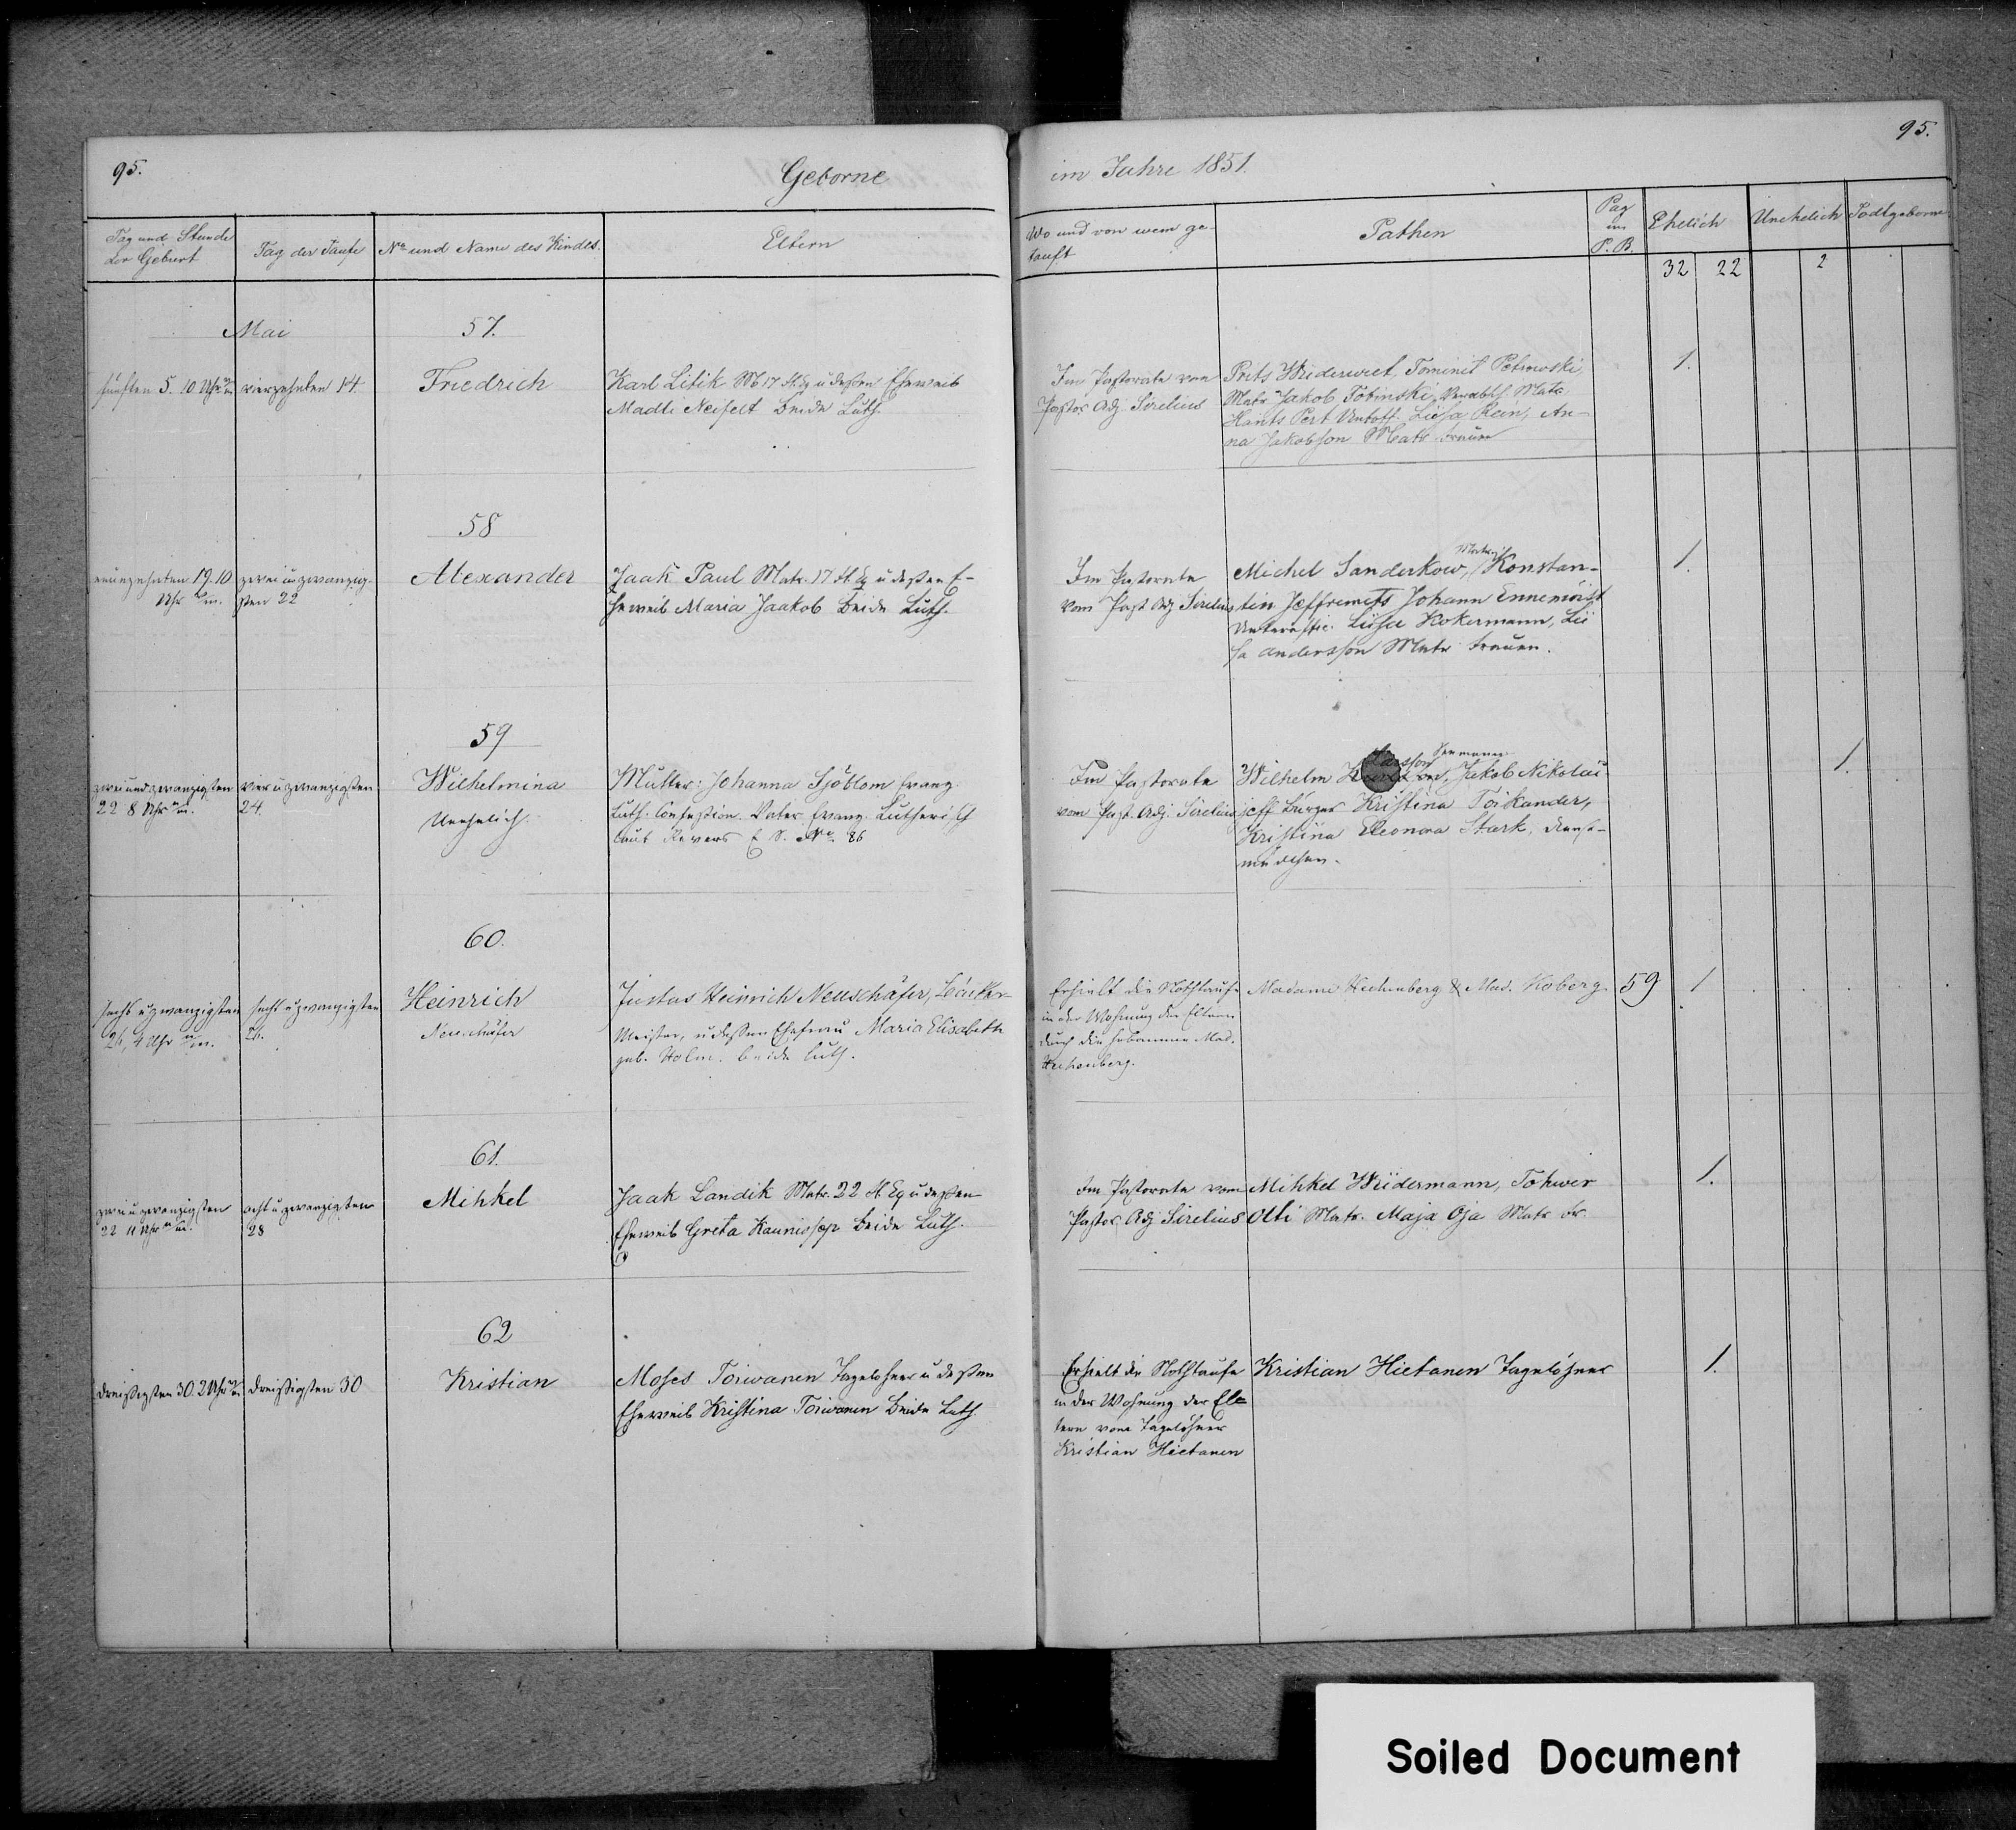 95.
Geborne
im Jahre 1851.
95.
Tag und Stunde
der Geburt
Tag der Taufe
No und Name des Kindes.
Eltern
Wo und von wem ge-
tauft
Pathen
Pag
im
P. B.
Ehelich
Unehelich
Todtgeborne
32 22
2
Mai
57.
fünften 5. 10 Uhr
vierzehnten 14
Friedrich
Karl Litik M 17 Fl. Eq u deßen Eheweib
Madli Neifelt beide Luth.
Im Pastorate von
Pastor Adj Sirelius
Prits Widerwiel, Tominit Petrowski,
Matr Jakob Tobinski, Matr.
Hants Pert Untoff. Liesa Rein, An-
na Jakobson Matr. frauen
1.
58
neunzehnten 19. 10
Uhr
zwei u zwanzig-
sten 22
Alexander
Jaak Paul Matr. 17 Fl. Eq u deßen E-
heweib Maria Jaakob beide Luth.
Im Pastorate
vom Past Adj Sirelius
Matr.
Michel Sanderkow, Konstan-
tin Jeffremets Johann Ennemöist
Unteroffic. Liisa Kokermann, Lii
sa Andersson Matr frauen.
1.
59
zwei und zwanzigsten
22 8 Uhr
vier u zwanzigsten
24.
Wilhelmina
Unehelich.
Mutter: Johanna Sjöblom Evang.
Luth. Confession. Vater Evang. Lutherisch
laut Revers E. S. No 86
Im Pastorate
vom Past. Adj. Sirelius
Seemann
Wilhelm Jakob Nikolai
jeff bürger Kristina Toikander,
Kristina Eleonora Stark, dienst-
mädchen.
1.
60.
sechs u zwanzigsten
26, 4 Uhr
sechs u zwanzigsten
26.
Heinrich
Neuschäfer
Justus Heinrich Neuschäfer, Bäcker-
Meister, u deßen Ehefrau Maria Elisabeth
geb. Holm. beide luth.
Erhielt die Nothtaufe
in der Wohnung der Eltern
durch die Hebamme Mad.
Madame & Mad. Koberg.
59
1
61.
zwei u zwanzigsten
22 11 Uhr
acht u zwanzigsten
28
Mihkel
Jaak Landik Matr. 22 Fl. Eq u deßen
Eheweib Greta Kaunissep beide Luth.
Im Pastorate vom
Pastor Adj Sirelius
Mihkel Wiidermann, Tohwer
Olti Matr. Maja Oja Matr. fr.
1.
62
dreißigsten 30. 2 Uhr
dreißigsten 30
Kristian
Moses Toiwanen Tagelöhner u deßen
Eheweib Kristina Toiwanen beide Luth.
Erhielt die Nothtaufe
in der Wohnung der El-
tern vom Tagelöhner
Kristian Hietanen
Kristian Hietanen Tagelöhner
1.
Soiled Document